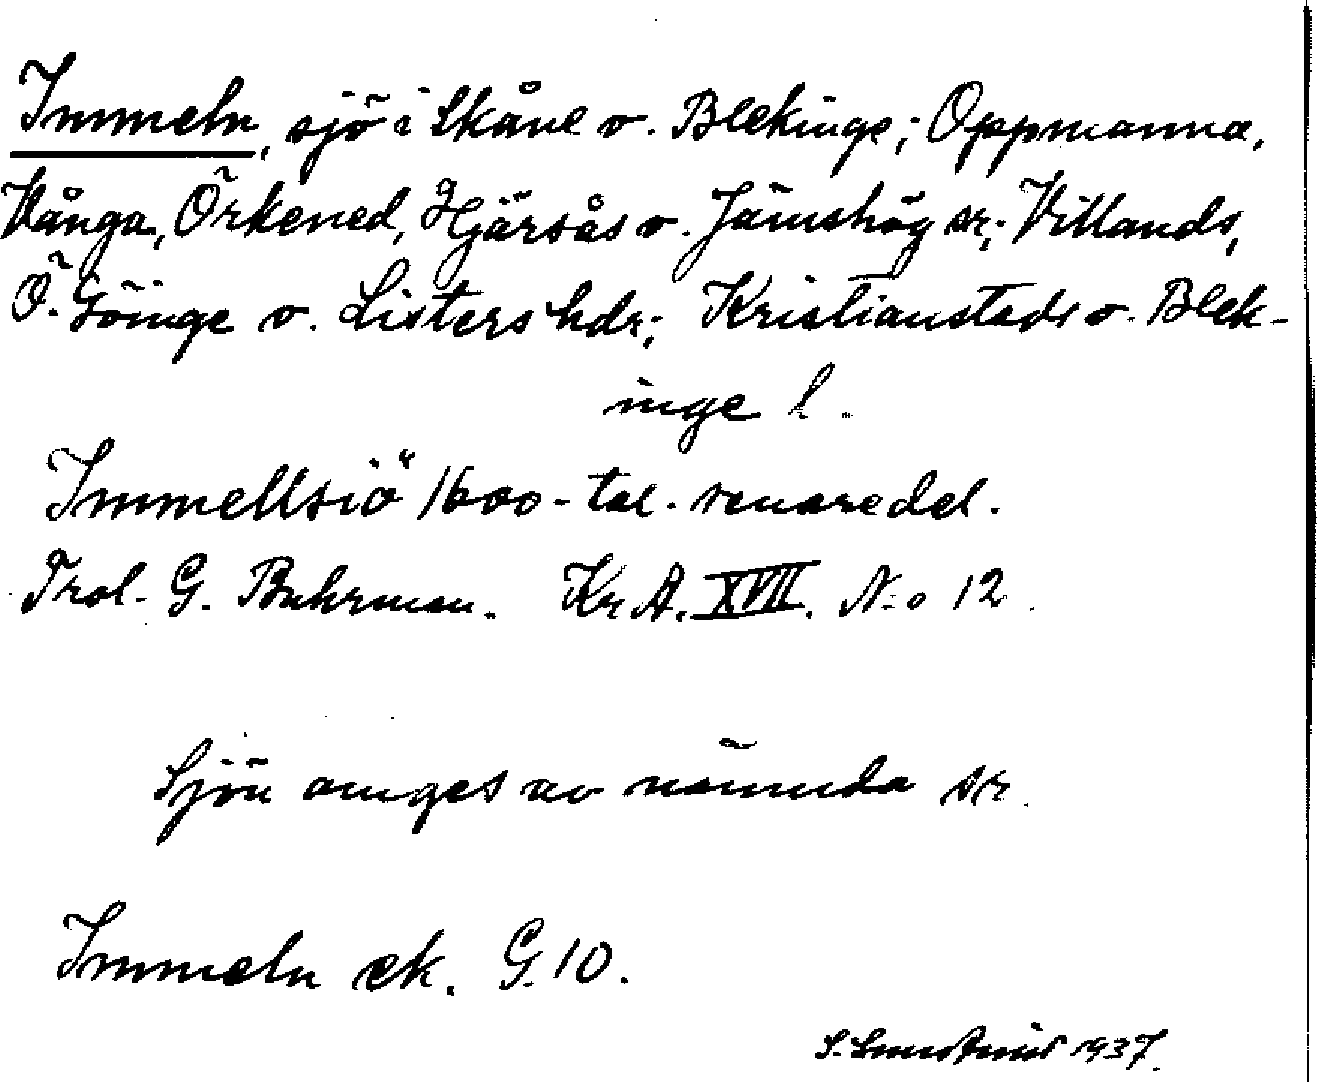 Immeln, sjö i Skåne o. Blekinge; Oppmanna,
Vånga, Örkened, Hjärsås o. Jämshög sr; Villands,
Ö. Göinge o. Listers hdr; Kristianstads o. Blek-
inge l.
Immellsiö 1600-tal. senare del.
Trol. G. Buhrman. Kr A. XVII. N:o 12.
Sjön omges av nämnda sr.
Immeln ek. G. 10.
S. 1937.